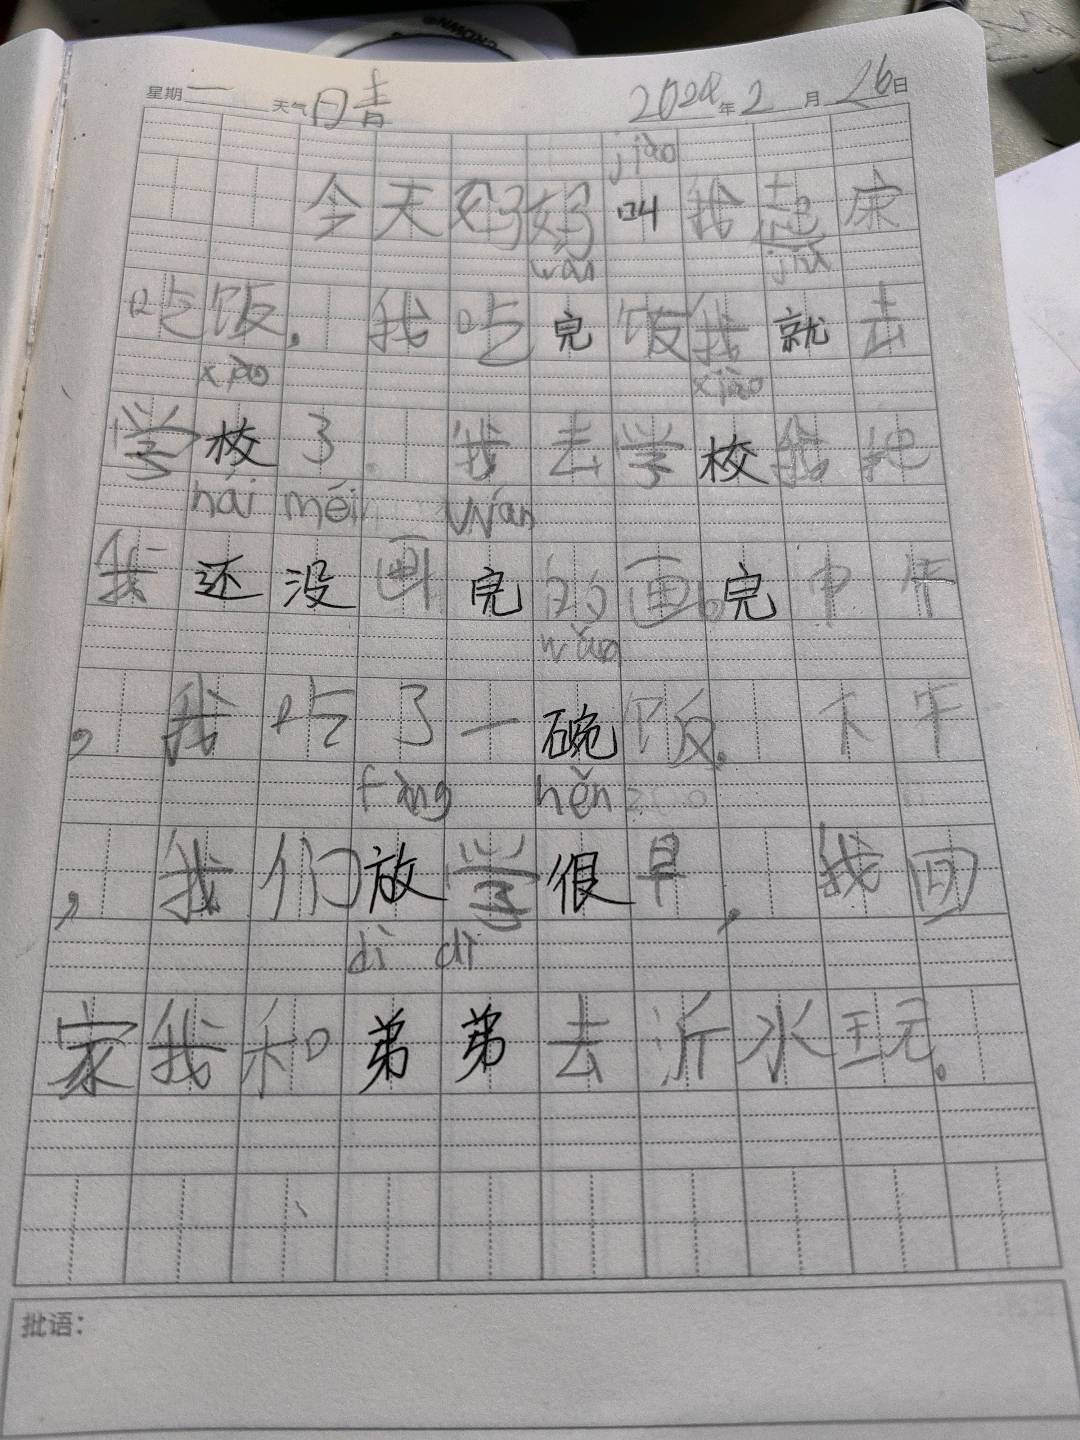 星期一 天气日青 2024年2月26日
jiào
今天妈妈叫我起床
wán jiù
吃饭。我吃完饭我就去
xiào xiào
学校了。我去学校我把
hái méi wán
我还没画完的画完中午
wǎn
，我吃了一碗饭。下午
fàng hěn zao
，我们放学很早，我回
dì di
家我和弟弟去沂水玩。
批语：